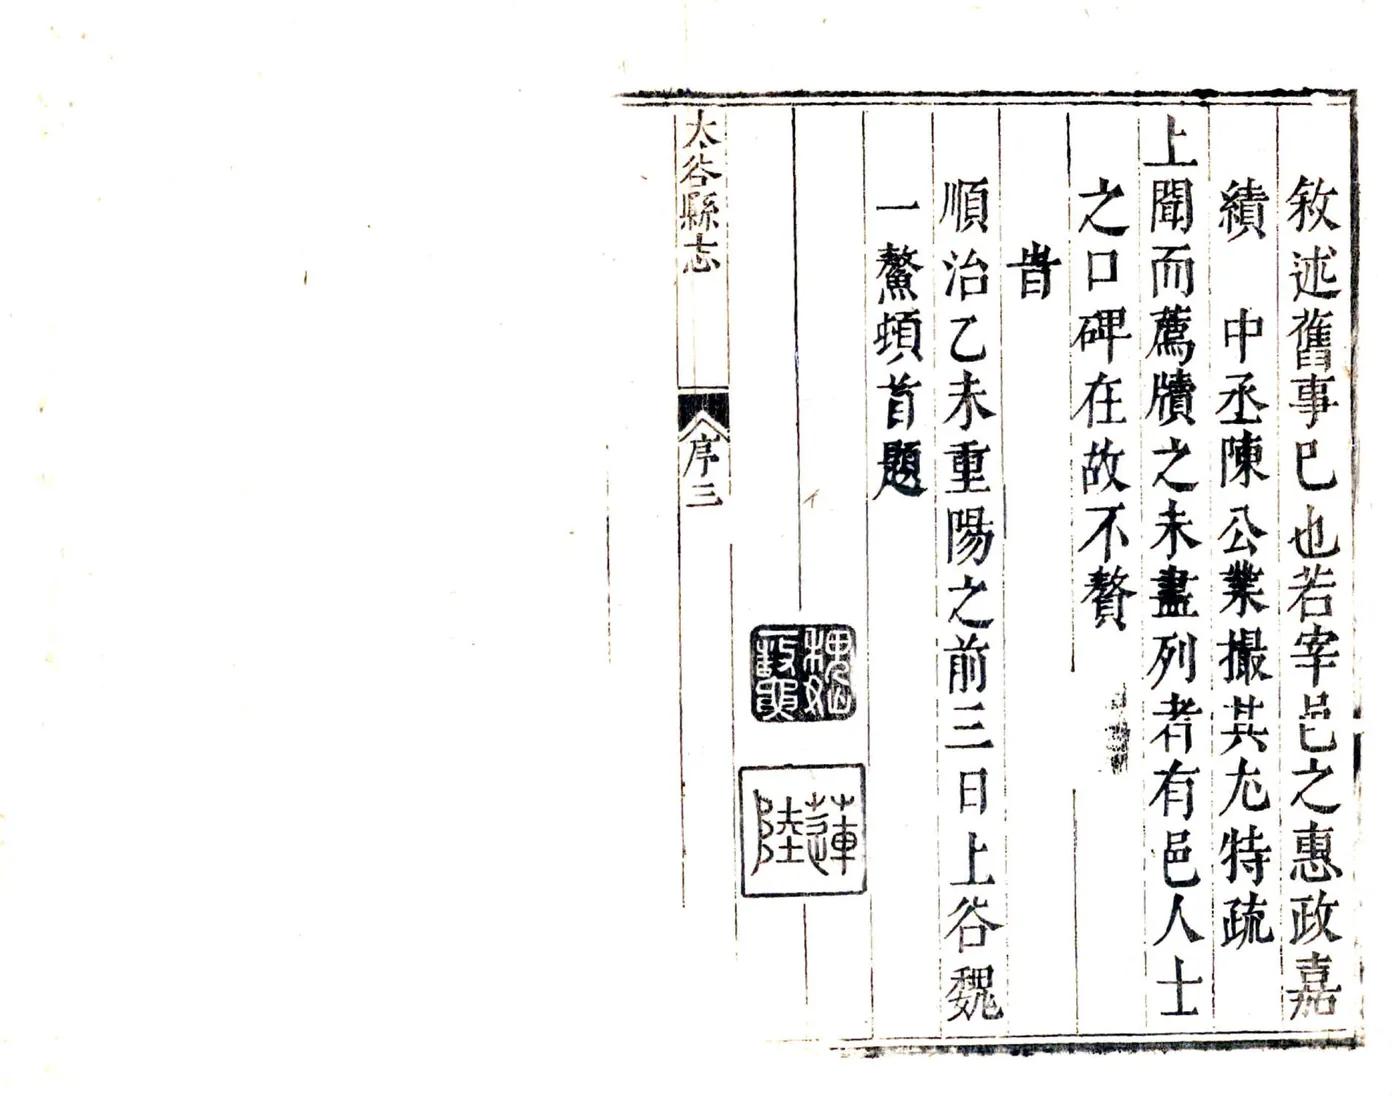 敘述舊事已也若宰邑之惠政嘉
績　中丞陳公業撮其尤特疏
上聞而薦牘之未盡列者有邑人士
之口碑在故不贅
旹
順治乙未重陽之前三日上谷魏
一鰲頓首題
蓮陸
太谷縣志
序三